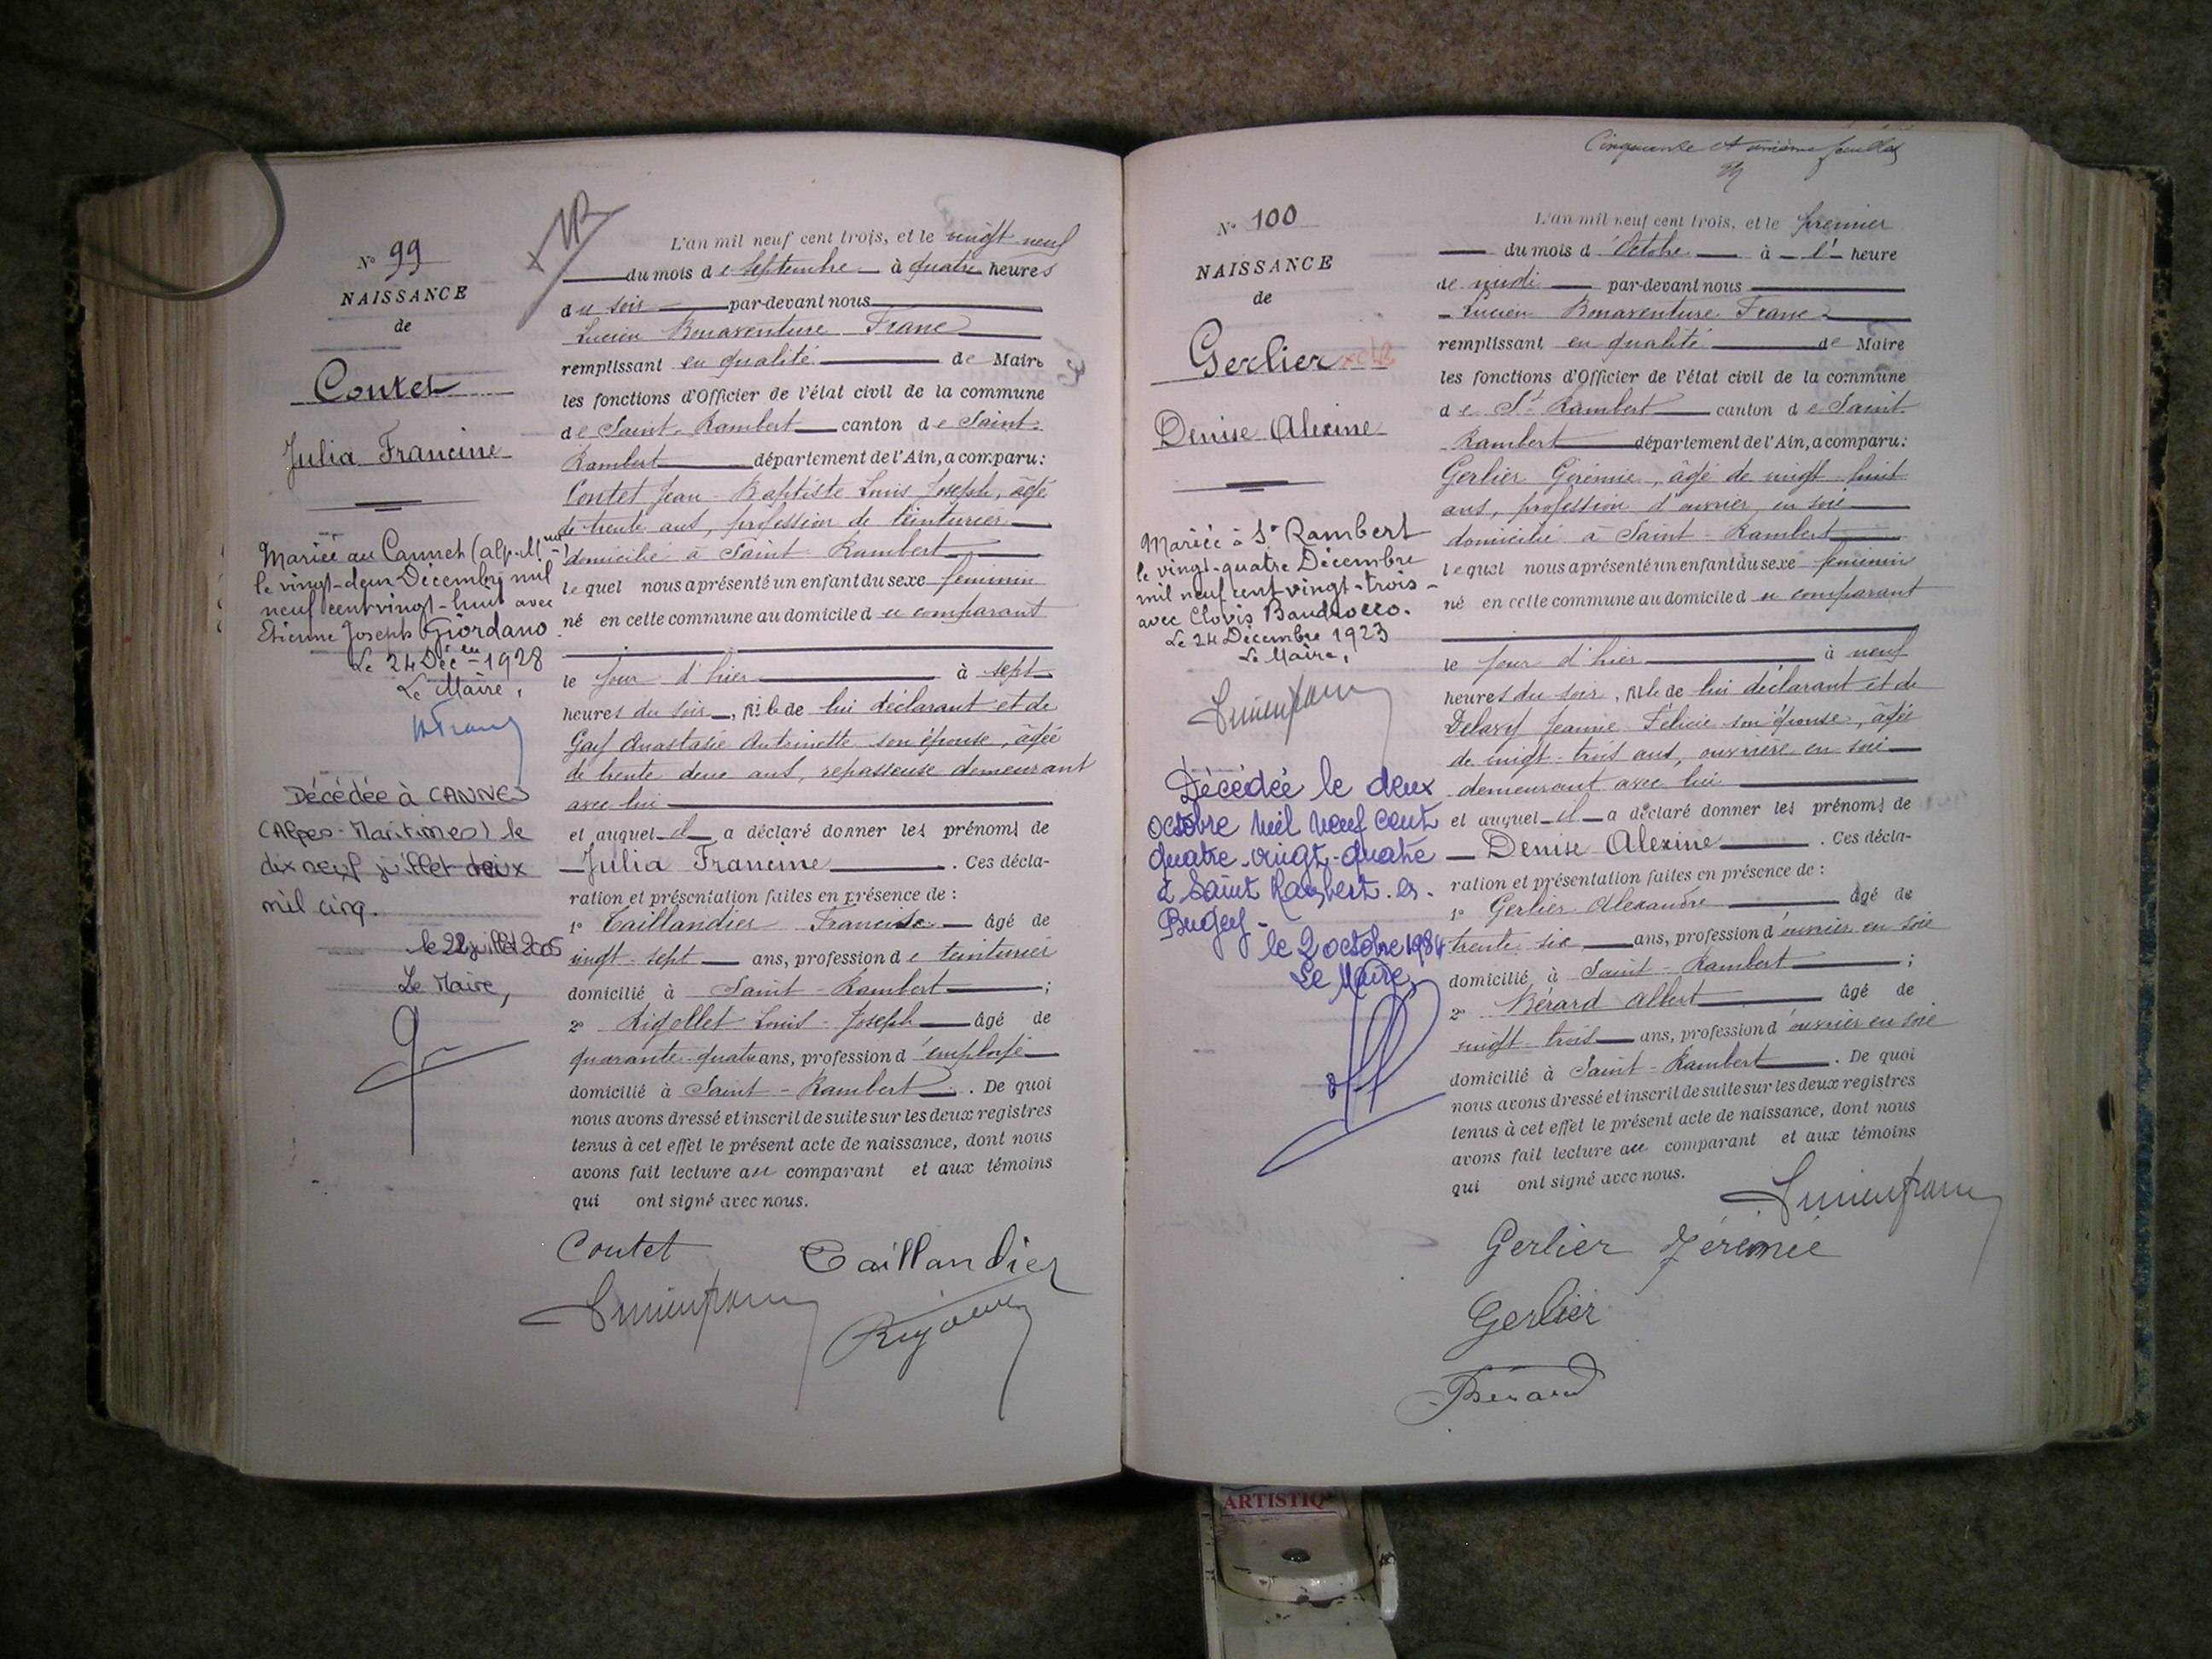 N° 99
NAISSANCE
de
Contet
Julia Francine
Mariée au Cannet (Alp.-M^mes)
le vingt-deux Décembre mil
neuf cent vingt-huit avec
Etienne Joseph Giordano
Le 24 Déc^bre 1928
Le Maire,
Décédée à CANNES
(Alpes-Maritimes) le
dix neuf juillet deux
mil cinq.
le 22 juillet 2005
Le Maire,
L'an mil neuf cent trois, et le vingt neuf
du mois de Septembre à quatre heures
du soir par-devant nous
Lucien Bonaventure Franc
remplissant en qualité de Maire
les fonctions d'Officier de l'état civil de la commune
de Saint-Rambert canton de Saint-
Rambert département de l'Ain, a comparu:
Contet Jean-Baptiste Louis Joseph, âgé
de trente ans, profession de teinturier
domicilié à Saint-Rambert
lequel nous a présenté un enfant du sexe féminin
né en cette commune au domicile du comparant
le jour d'hier à sept
heures du soir, fille de lui déclarant et de
Gay Anastasie Antoinette son épouse, âgée
de trente deux ans, repasseuse demeurant
avec lui
et auquel il a déclaré donner les prénoms de
Julia Francine. Ces décla-
ration et présentation faites en présence de:
1° Taillandier Francisc âgé de
vingt-sept ans, profession de teinturier
domicilié à Saint-Rambert;
2° Rigollet Louis-Joseph âgé de
quarante-quatre ans, profession d'employé
domicilié à Saint-Rambert. De quoi
nous avons dressé et inscrit de suite sur les deux registres
tenus à cet effet le présent acte de naissance, dont nous
avons fait lecture au comparant et aux témoins
qui ont signé avec nous.
Contet Taillandier
Cinquante et unième feuillet
N° 100
NAISSANCE
de
Gerlier
Denise Alexine
Mariée à St Rambert
le vingt-quatre Décembre
mil neuf cent vingt-trois
avec Clovis Baudrocco.
Le 24 Décembre 1923
Le Maire,
Décédée le deux
octobre mil neuf cent
quatre-vingt-quatre
à Saint Rambert-en-
Bugey-
le 2 octobre 1984
Le Maire,
L'an mil neuf cent trois, et le premier
du mois d'Octobre à l' heure
de midi par-devant nous
Lucien Bonaventure Franc
remplissant en qualité de Maire
les fonctions d'Officier de l'état civil de la commune
de St Rambert canton de Saint-
Rambert département de l'Ain, a comparu:
Gerlier Gérémie, âgé de vingt-huit
ans, profession d'ouvrier en soie
domicilié à Saint-Rambert
lequel nous a présenté un enfant du sexe féminin
né en cette commune au domicile du comparant
le jour d'hier à neuf
heures du soir, fille de lui déclarant et de
Jeanne Félicie son épouse, âgée
de vingt-trois ans, ouvrière en soie
demeurant avec lui
et auquel il a déclaré donner les prénoms de
Denise Alexine. Ces décla-
ration et présentation faites en présence de:
1° Gerlier Alexandre âgé de
trente six ans, profession d'ouvrier en soie
domicilié à Saint-Rambert;
2° Bérard Albert âgé de
vingt-trois ans, profession d'ouvrier en soie
domicilié à Saint-Rambert. De quoi
nous avons dressé et inscrit de suite sur les deux registres
tenus à cet effet le présent acte de naissance, dont nous
avons fait lecture au comparant et aux témoins
qui ont signé avec nous.
Gerlier Jérémie
Gerlier
Bérard
ARTISTIQ